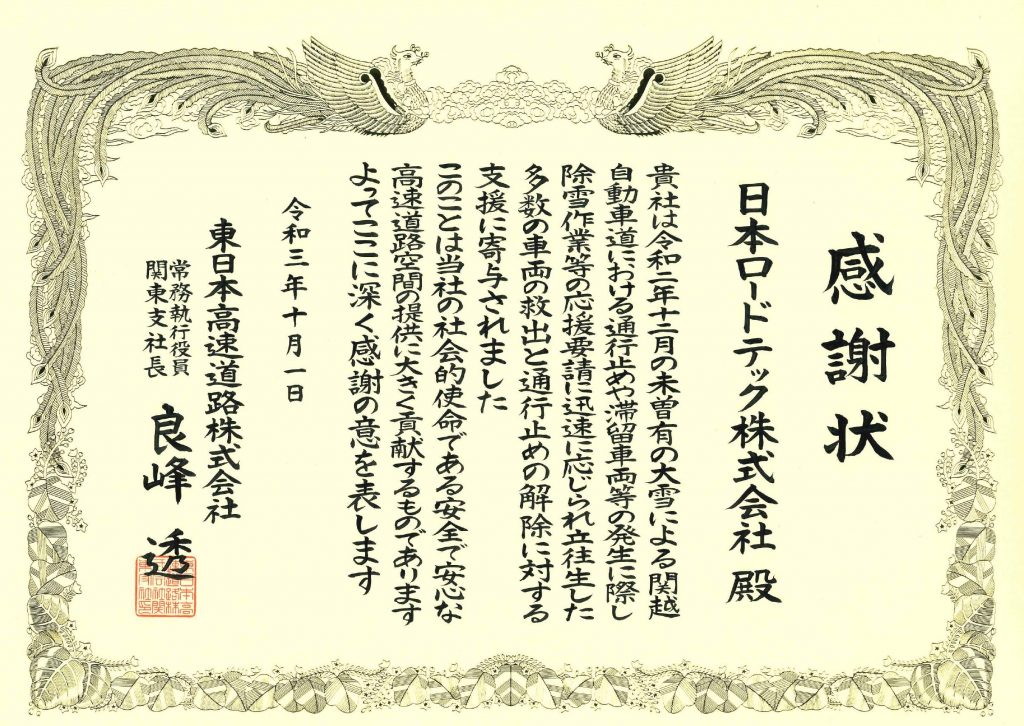 感謝状
日本ロードテック株式会社 殿
貴社は令和二年十二月の未曽有の大雪による関越
自動車道における通行止めや滞留車両等の発生に際し
除雪作業等の応援要請に迅速に応じられ立往生した
多数の車両の救出と通行止めの解除に対する
支援に寄与されました
このことは当社の社会的使命である安全で安心な
高速道路空間の提供に大きく貢献するものであります
よってここに深く感謝の意を表します
令和三年十月一日
東日本高速道路株式会社
常務執行役員
関東支社長
良峰 透